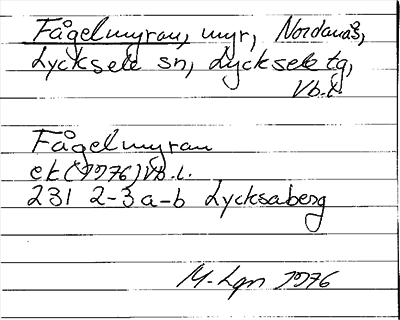 Fågelmyran, myr, Nordanås,
Lycksele sn, Lycksele tg,
Vb.l.
Fågelmyran
ek (1976) Vb.l.
231 2-3 a-b Lycksaberg
M-Lgn 1976